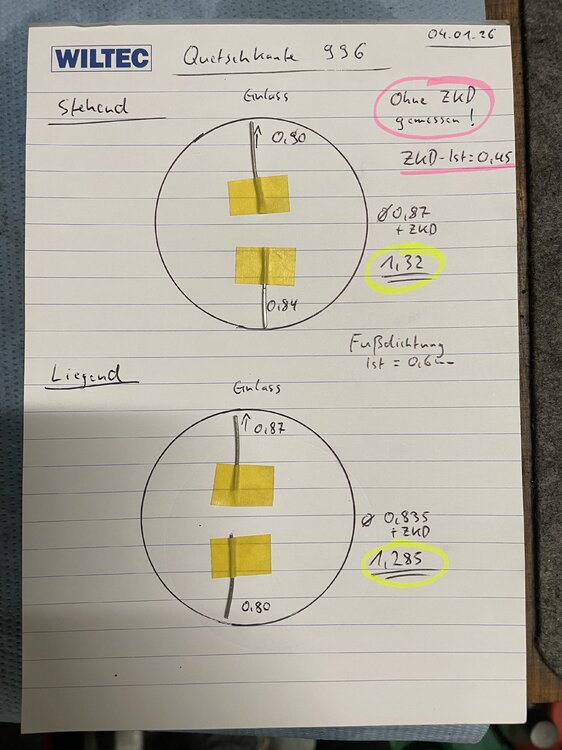 04.01.26
WILTEC
Quetschkante 996
Stehend
Einlass
Ohne ZKD
gemessen!
ZKD-Ist = 0,45
↑ 0,90
Ø 0,87
+ ZKD
1,32
0,84
Fußdichtung
Ist = 0,6mm
Liegend
Einlass
↑ 0,87
Ø 0,835
+ ZKD
1,285
0,80